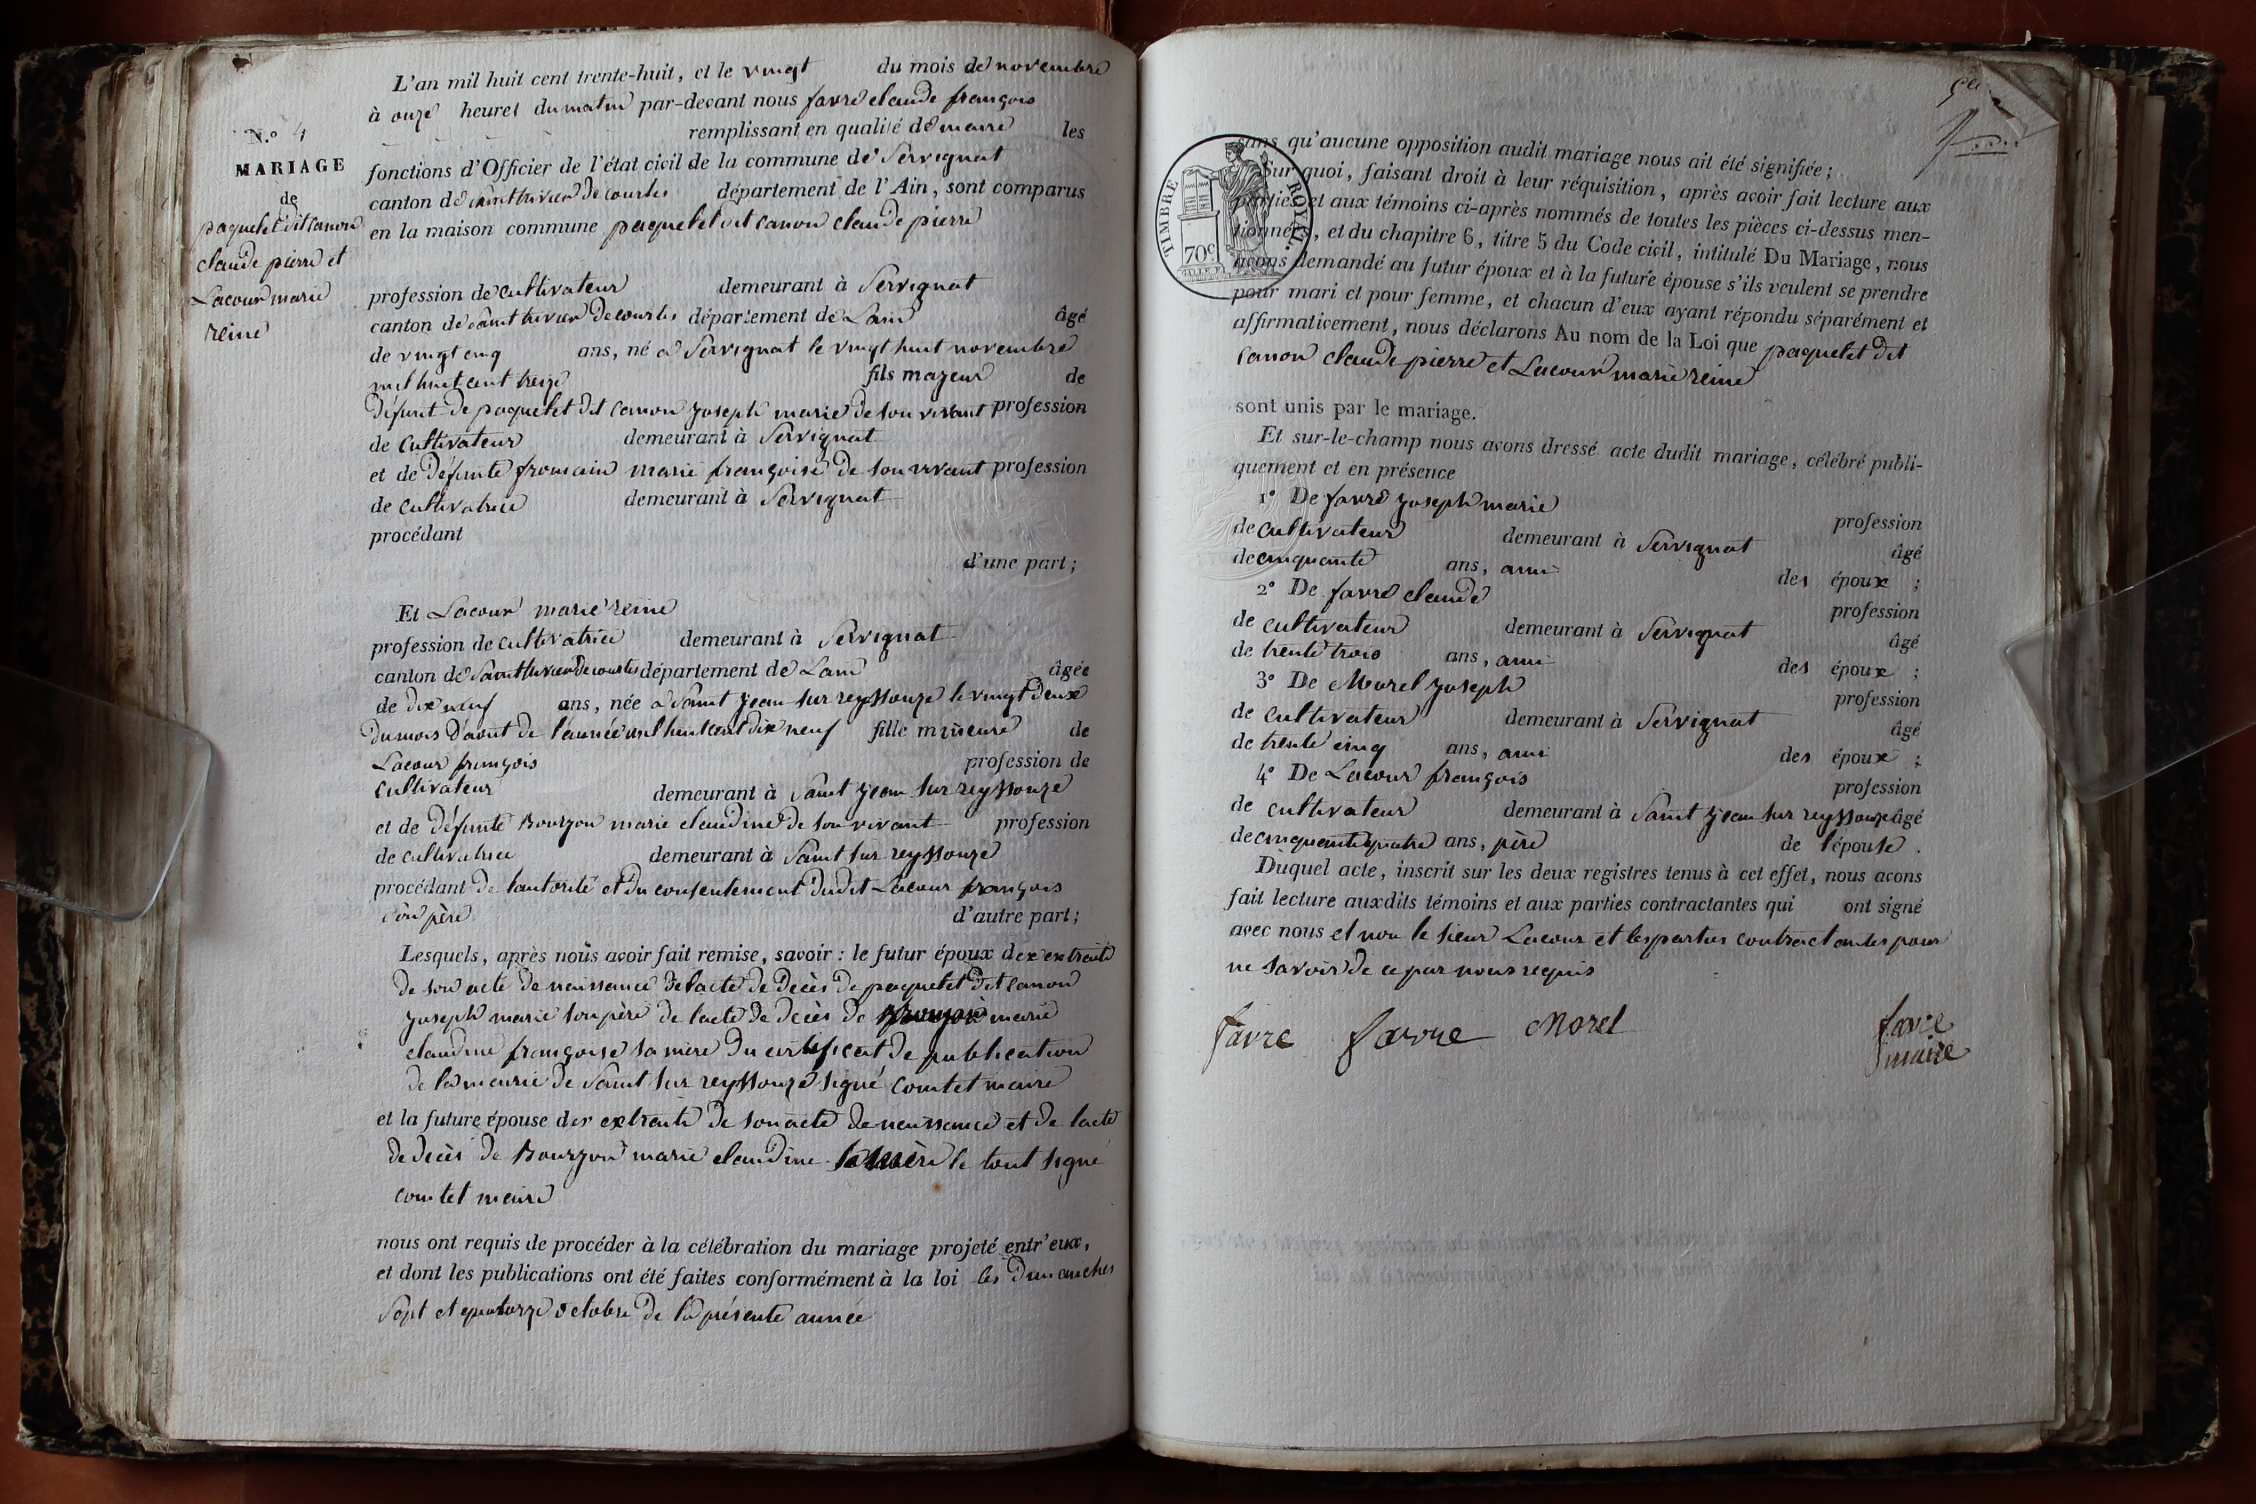 L'an mil huit cent trente-huit, et le vingt du mois de novembre
à onze heures du matin par-devant nous favre claude françois
remplissant en qualité de maire les
N.° 4
MARIAGE
de
paquelet dit canon
claude pierre et
Lacour marie
reine
fonctions d'Officier de l'état civil de la commune de Servignat
canton de saint trivier de courtes département de l'Ain, sont comparus
en la maison commune paquelet dit canon claude pierre
profession de cultivateur demeurant à Servignat
canton de saint trivier de courtes département de Lain âgé
de vingt cinq ans, né à Servignat le vingt huit novembre
mil huit cent treize fils majeur de
défunt de paquelet dit canon joseph marie de son vivant profession
de cultivateur demeurant à Servignat
et de défunte fromain marie françoise de son vivant profession
de cultivatrice demeurant à Servignat
procédant
d'une part;
Et Lacour marie reine
profession de cultivatrice demeurant à Servignat
canton de Saint trivier de courtes département de Lain âgée
de dix neuf ans, née à Saint jean sur reyssouze le vingt deux
du mois d'août de l'année mil huit cent dix neuf fille mineure de
Lacour françois profession de
cultivateur demeurant à Saint jean sur reyssouze
et de défunte Bourjon marie claudine de son vivant profession
de cultivatrice demeurant à Saint sur reyssouze
procédant de lautorité et du consentement dudit Lacour françois
son père d'autre part;
Lesquels, après nous avoir fait remise, savoir: le futur époux des extraits
de son acte de naissance de lacte de décès de paquelet dit canon
joseph marie son père de lacte de décès de marie
claudine françoise sa mère du certificat de publication
de la mairie de Saint sur reyssouze signé comtet maire
et la future épouse des extraits de son acte de naissance et de lacte
de décès de Bourjon marie claudine sa mère le tout signé
comtet maire
nous ont requis de procéder à la célébration du mariage projeté entr'eux,
et dont les publications ont été faites conformément à la loi les dimanches
Sept et quatorze octobre de la présente année
TIMBRE ROYAL.
70c
sans qu'aucune opposition audit mariage nous ait été signifiée;
Sur quoi, faisant droit à leur réquisition, après avoir fait lecture aux
parties et aux témoins ci-après nommés de toutes les pièces ci-dessus men-
tionnées, et du chapitre 6, titre 5 du Code civil, intitulé Du Mariage, nous
avons demandé au futur époux et à la future épouse s'ils veulent se prendre
pour mari et pour femme, et chacun d'eux ayant répondu séparément et
affirmativement, nous déclarons Au nom de la Loi que paquelet dit
canon claude pierre et Lacour marie reine
sont unis par le mariage.
Et sur-le-champ nous avons dressé acte dudit mariage, célébré publi-
quement et en présence
1° De favre joseph marie profession
de cultivateur demeurant à Servignat âgé
de cinquante ans, ami des époux;
2° De favre claude profession
de cultivateur demeurant à Servignat âgé
de trente trois ans, ami des époux;
3° De Morel joseph profession
de cultivateur demeurant à Servignat âgé
de trente cinq ans, ami des époux;
4° De Lacour françois profession
de cultivateur demeurant à Saint jean sur reyssouze âgé
de cinquante quatre ans, père de l'épouse.
Duquel acte, inscrit sur les deux registres tenus à cet effet, nous avons
fait lecture auxdits témoins et aux parties contractantes qui ont signé
avec nous et non le sieur Lacour et les parties contractantes pour
ne savoir de ce par nous requis
favre favre Morel favre
maire